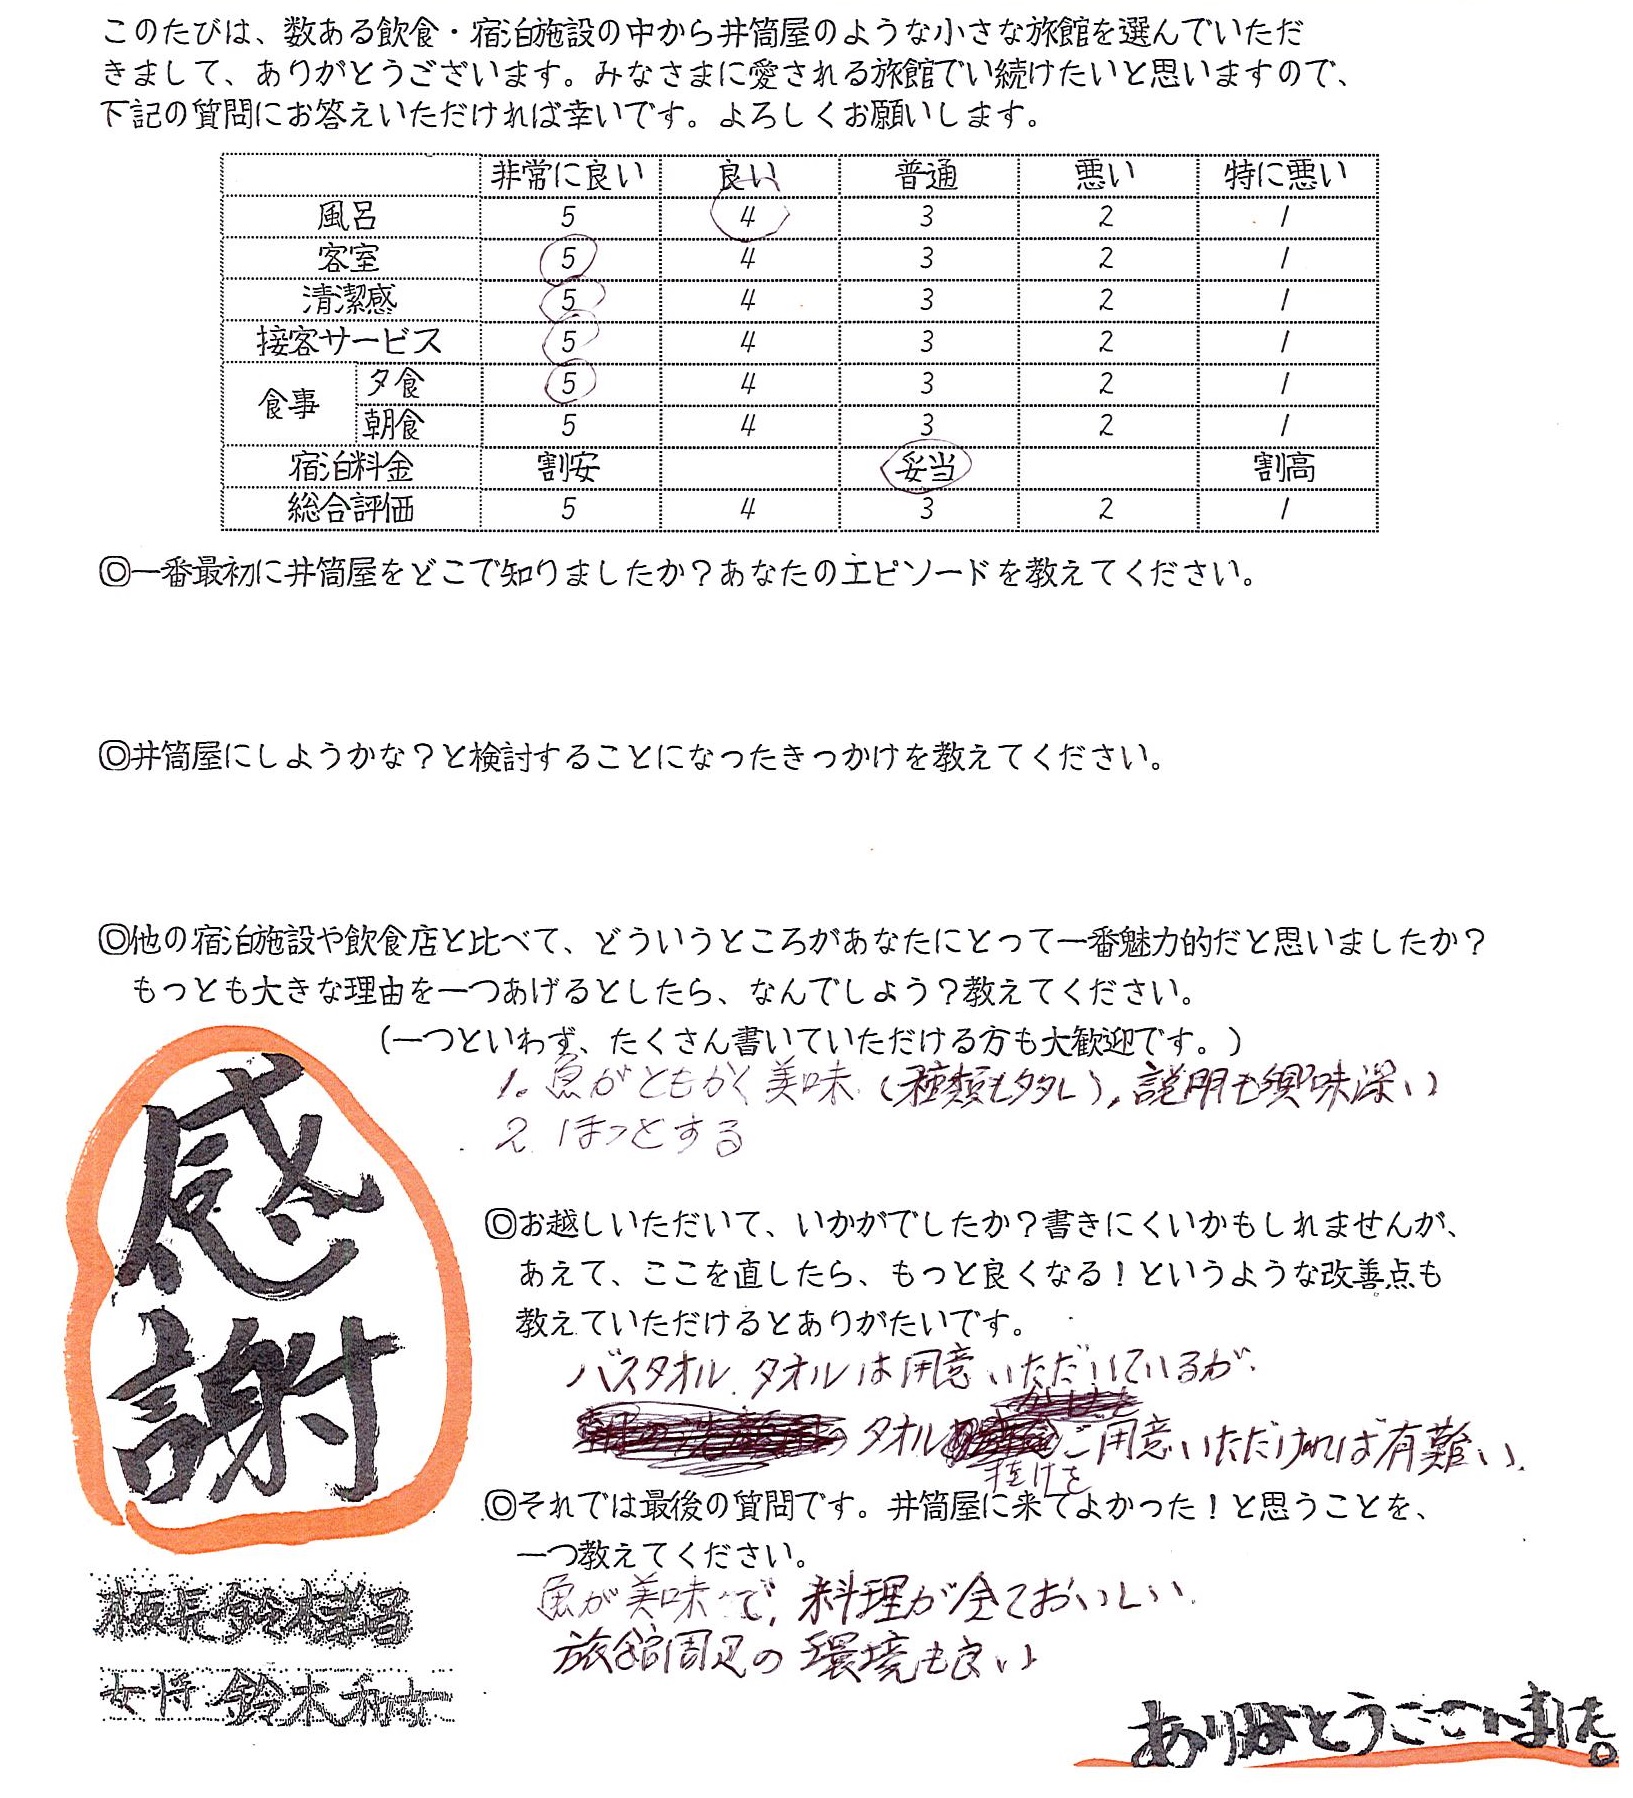 このたびは、数ある飲食・宿泊施設の中から井筒屋のような小さな旅館を選んでいただ
きまして、ありがとうございます。みなさまに愛される旅館でい続けたいと思いますので、
下記の質問にお答えいただければ幸いです。よろしくお願いします。
非常に良い 良い 普通 悪い 特に悪い
風呂 5 4 3 2 1
客室 5 4 3 2 1
清潔感 5 4 3 2 1
接客サービス 5 4 3 2 1
食事 夕食 5 4 3 2 1
朝食 5 4 3 2 1
宿泊料金 割安 妥当 割高
総合評価 5 4 3 2 1
◎一番最初に井筒屋をどこで知りましたか?あなたのエピソードを教えてください。
◎井筒屋にしようかな?と検討することになったきっかけを教えてください。
◎他の宿泊施設や飲食店と比べて、どういうところがあなたにとって一番魅力的だと思いましたか?
もっとも大きな理由を一つあげるとしたら、なんでしょう?教えてください。
(一つといわず、たくさん書いていただける方も大歓迎です。)
1. 魚がともかく美味(種類も多し)、説明も興味深い
2. ほっとする
感謝
◎お越しいただいて、いかがでしたか?書きにくいかもしれませんが、
あえて、ここを直したら、もっと良くなる!というような改善点も
教えていただけるとありがたいです。
バスタオル、タオルは用意いただいているが、
タオル掛けをご用意いただければ有難い。
◎それでは最後の質問です。井筒屋に来てよかった!と思うことを、
一つ教えてください。
魚が美味で、料理が全ておいしい。
旅館周辺の環境も良い
板長 鈴木
女将 鈴木和女
ありがとうございました。